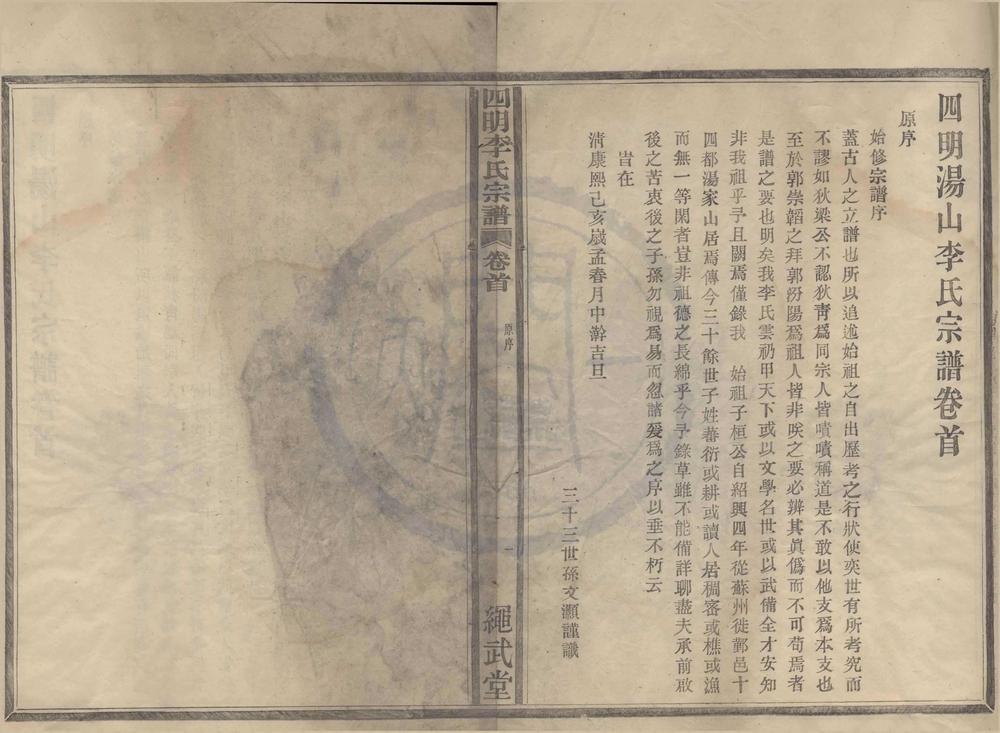 四明湯山李氏宗譜卷首
原序
始修宗譜序
蓋古人之立譜也所以追述始祖之自出歷考之行狀使奕世有所考究而
不謬如狄梁公不認狄青爲同宗人皆嘖嘖稱道是不敢以他支爲本支也
至於郭崇韜之拜郭汾陽爲祖人皆非咲之要必辨其眞僞而不可苟焉者
是譜之要也明矣我李氏雲礽甲天下或以文學名世或以武備全才安知
非我祖乎予且闕焉僅錄我 始祖子桓公自紹興四年從蘇州徙鄞邑十
四都湯家山居焉傳今三十餘世子姓蕃衍或耕或讀人居稠密或樵或漁
而無一等閑者豈非祖德之長綿乎今予錄草雖不能備詳聊盡夫承前啟
後之苦衷後之子孫勿視爲易而忽諸爰爲之序以垂不朽云
旹在
清康熙己亥歲孟春月中澣吉旦
三十三世孫文灝謹識
四明李氏宗譜 卷首
原序
一
繩武堂